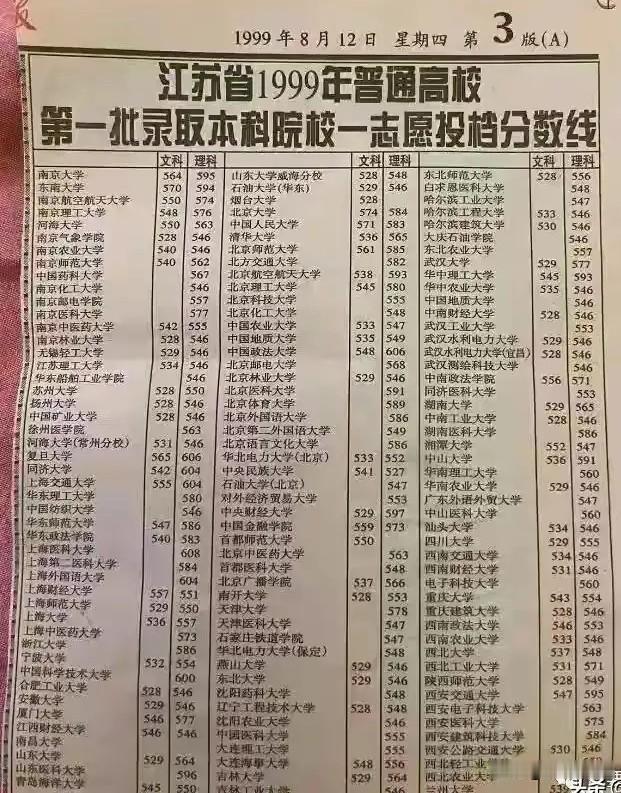 1999年8月12日 星期四 第3版(A)
江苏省1999年普通高校
第一批录取本科院校一志愿投档分数线
文科 理科
南京大学 564 595
东南大学 570 594
南京航空航天大学 550 574
南京理工大学 548 576
河海大学 550 563
南京气象学院 528 546
南京农业大学 540 546
南京师范大学 540 562
中国药科大学 567
南京化工大学 546
南京邮电学院 557
南京医科大学 577
南京中医药大学 542 555
南京林业大学 528 546
无锡轻工大学 529 546
江苏理工大学 534 546
华东船舶工业学院 546
苏州大学 528 550
扬州大学 528 546
中国矿业大学 528 546
徐州医学院 563
河海大学(常州分校) 531 546
复旦大学 565 606
同济大学 542 604
上海交通大学 555 604
华东理工大学 580
中国纺织大学 546
华东师范大学 547 586
华东政法学院 540 583
上海医科大学 608
上海第二医科大学 584
上海外国语大学 604
上海财经大学 557 551
上海师范大学 529 550
上海大学 536 557
上海中医药大学 573
浙江大学 586
宁波大学 532 554
中国科学技术大学 600
合肥工业大学 528 546
安徽大学 529 546
厦门大学 546 577
江西财经大学 546
南昌大学
山东大学 529 564
山东医科大学 596
青岛海洋大学 545 550
文科 理科
山东大学威海分校 528 548
石油大学(华东) 529 546
烟台大学 528
北京大学 574 584
中国人民大学 571 583
清华大学 536 565
北京师范大学 561 585
北方交通大学 582
北京航空航天大学 538 593
北京理工大学 545 580
北京科技大学 555
北京化工大学 548
中国农业大学 533 547
中国地质大学 535 549
中国政法大学 548 606
北京邮电大学 568
北京林业大学 529 546
北京医科大学 591
北京体育大学 589
北京外国语大学 586
北京第二外国语大学 549
北京语言文化大学 586
华北电力大学(北京) 533 552
中央民族大学 541 527
石油大学(北京) 547
对外经济贸易大学 553
中央财经大学 529 597
中国金融学院 559 573
首都师范大学 550
北京中医药大学 563
首都医科大学 548
北京广播学院 537 566
南开大学 528 553
天津大学 578
天津医科大学 547
石家庄铁道学院 547
华北电力大学(保定) 546
燕山大学 529 546
东北大学 529 546
沈阳药科大学 548
辽宁工程技术大学 528 548
沈阳农业大学 546
中国医科大学 555
大连理工大学 555
大连海事大学 548 556
吉林大学 529 564
吉林工业大学 546
文科 理科
东北师范大学 528 556
白求恩医科大学 548
哈尔滨工业大学 547
哈尔滨工程大学 533 546
哈尔滨建筑大学 530 546
大庆石油学院 546
东北农业大学 557
武汉大学 529 577
华中理工大学 545 593
华中农业大学 535 546
中国地质大学 546
中南财经大学 528 546
武汉工业大学 553
武汉水利电力大学 529 546
武汉水利电力大学(宜昌) 528 546
武汉测绘科技大学 546
中南政法学院 556 571
同济医科大学 553
湖南大学 529 565
中南工业大学 528 546
湖南医科大学 586
湘潭大学 552 547
中山大学 536 591
华南理工大学 560
华南农业大学 529 546
广东外语外贸大学 547
中山医科大学 560
汕头大学 534 546
四川大学 529 555
西南交通大学 534 546
西南财经大学 531 546
电子科技大学 560
重庆大学 543 554
重庆建筑大学 528 546
西南政法大学 546 553
西南农业大学 533 546
西北大学 537 548
西北工业大学 531 571
陕西师范大学 528 549
西安交通大学 547 595
西安电子科技大学 563
西安医科大学 575
西安建筑科技大学 584
西安公路交通大学 530 546
西北轻工业
西北农业大学
兰州大学
头条